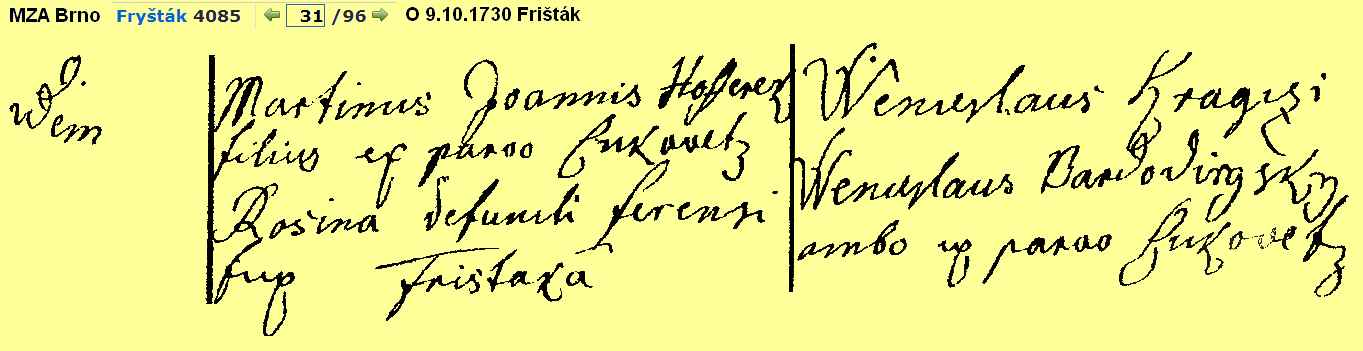 MZA Brno Fryšták 4085 31 /96 O 9.10.1730 Frišták
d.
Wem
Martinus Joannis
filius ex parvo Lukovetz
Rosina defuncti ferensi
Fristaka
Wenceslaus
Wenceslaus
ambo ex parvo Lukovetz